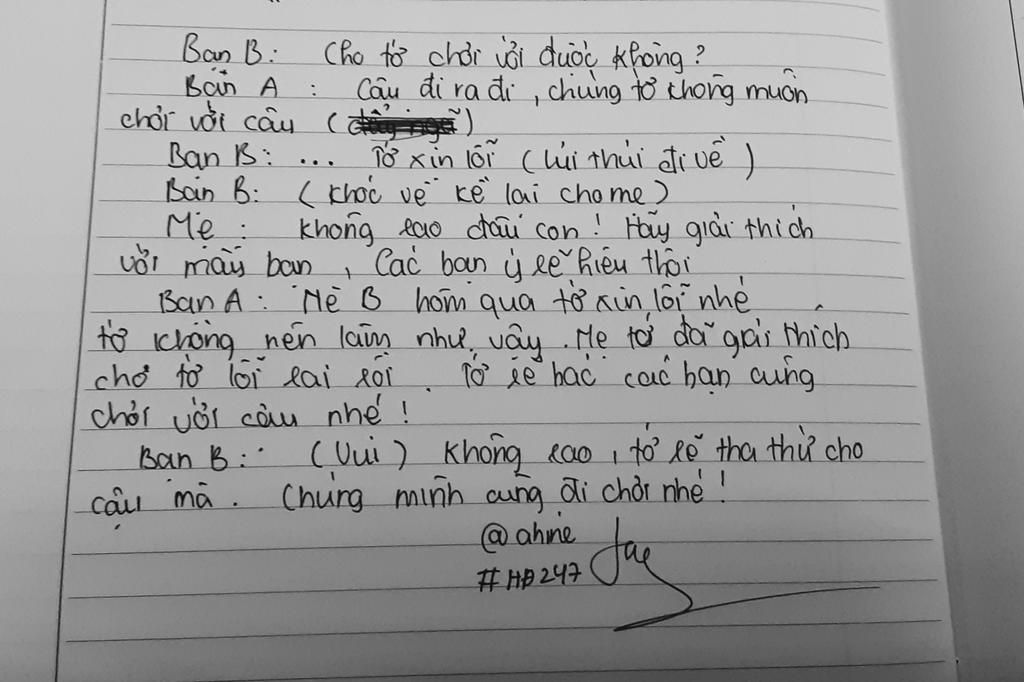 Bạn B: Cho tớ chơi với được không?
Bạn A : Cậu đi ra đi, chúng tớ không muốn
chơi với cậu ( )
Bạn B: ... Tớ xin lỗi (lủi thủi đi về)
Bạn B: (khóc về kể lại cho mẹ)
Mẹ : không sao đâu con! Hãy giải thích
với mấy bạn, các bạn ý sẽ hiểu thôi
Bạn A: Nè B hôm qua tớ xin lỗi nhé
tớ không nên làm như vậy. Mẹ tớ đã giải thích
cho tớ lỗi sai rồi. Tớ sẽ bác các bạn cùng
chơi với cậu nhé!
Bạn B: (Vui) Không sao, tớ sẽ tha thứ cho
cậu mà. Chúng mình cùng đi chơi nhé!
@ahne
#HĐ247